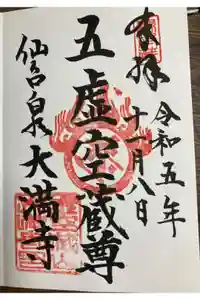 奉拝
令和五年
十一月八日
五虚空蔵尊
仙台
大満寺